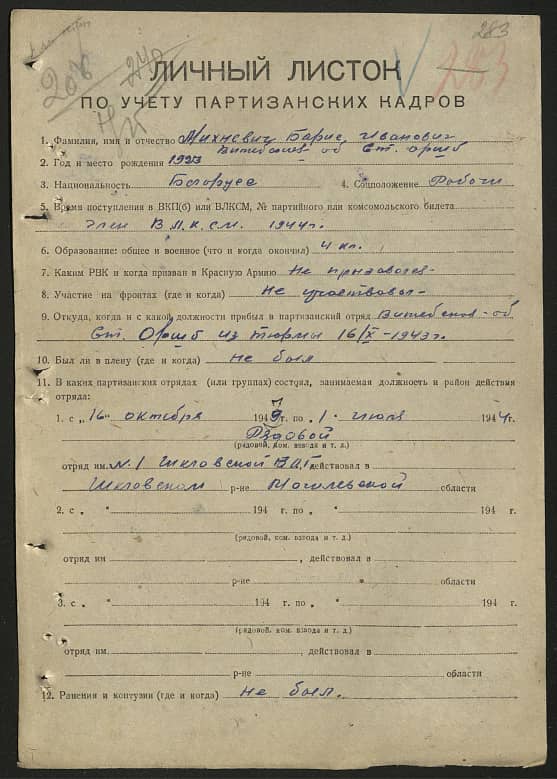 283
208
240
283
ЛИЧНЫЙ ЛИСТОК
ПО УЧЕТУ ПАРТИЗАНСКИХ КАДРОВ
1. Фамилия, имя и отчество Михневич Барис Иванович
2. Год и место рождения 1923 Витебская об Ст. Оршб
3. Национальность Белорусс 4. Соцположение Рабочи
5. Время поступления в ВКП(б) или ВЛКСМ, № партийного или комсомольского билета
Член В.Л.К.С.М. 1944г.
6. Образование: общее и военное (что и когда окончил) 4 кл.
7. Каким РВК и когда призван в Красную Армию Не призвался
8. Участие на фронтах (где и когда) Не участвовал
9. Откуда, когда и с какой должности прибыл в партизанский отряд Витебской об
Ст. Оршб из тюрмы 16/X-1943г.
10. Был ли в плену (где и когда) не был
11. В каких партизанских отрядах (или группах) состоял, занимаемая должность и район действия
отряда:
1. с „16" октября 1943г. по „1" июля 1944г.
Рядовой
(рядовой, ком. взвода и т. д.)
отряд им. N.1 Шкловской В.О.Г. действовал в
Шкловском р-не Могилевской области
2. с „ " 194 г. по „ " 194 г.
(рядовой, ком. взвода и т. д.)
отряд им , действовал в
р-не области
3. с „ " 194 г. по „ " 194 г.
(рядовой, ком. взвода и т. д.)
отряд им. , действовал в
р-не области
12. Ранения и контузии (где и когда) не был.